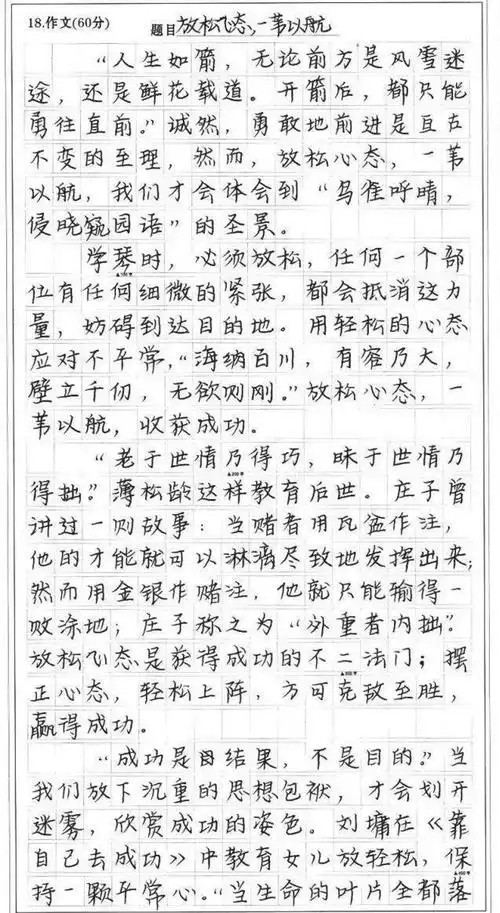 18.作文(60分)
题目 放松心态,一苇以航
“人生如箭，无论前方是风雪迷
途，还是鲜花载道。开箭后，都只能
勇往直前。”诚然，勇敢地前进是亘古
不变的至理，然而，放松心态，一苇
以航，我们才会体会到“鸟雀呼晴，
侵晓窥园语”的圣景。
学琴时，必须放松，任何一个部
位有任何细微的紧张，都会抵消这力
量，妨碍到达目的地。用轻松的心态
应对不平常，“海纳百川，有容乃大，
壁立千仞，无欲则刚。”放松心态，一
苇以航，收获成功。
“老于世情乃得巧，昧于世情乃
得拙。”薄松龄这样教育后世。庄子曾
讲过一则故事：当赌者用瓦盆作注，
他的才能就可以淋漓尽致地发挥出来；
然而用金银作赌注，他就只能输得一
败涂地；庄子称之为“外重者内拙”。
放松心态是获得成功的不二法门；摆
正心态，轻松上阵，方可克敌至胜，
赢得成功。
“成功是结果，不是目的。”当
我们放下沉重的思想包袱，才会划开
迷雾，欣赏成功的姿色。刘墉在《靠
自己去成功》中教育女儿放轻松，保
持一颗平常心。“当生命的叶片全都落